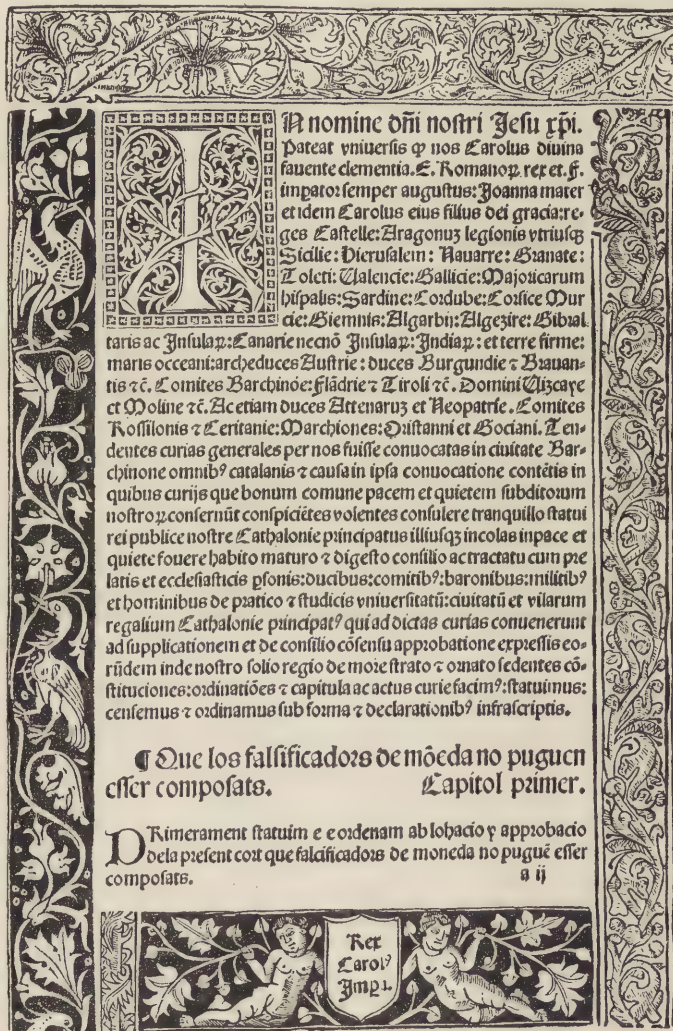 IN nomine dñi nostri Jesu xp̄i.
Pateat vniuersis ꝙ nos Carolus diuina
fauente clementia. E. Romanoꝝ rex et. f.
imꝑator semper augustus: Joanna mater
et idem Carolus eius filius dei gracia: re-
ges Castelle: Aragonuz legionis vtriusqꝫ
Sicilie: Hierusalem: Nauarre: Granate:
Toleti: Ualencie: Gallicie: Majoricarum
hispalis: Sardine: Cordube: Corsice Mur
cie: Giemnis: Algarbij: Algezire: Gibral
taris ac Insulaꝝ: Canarie necnõ Insulaꝝ: Indiaꝝ: et terre firme:
maris occeani: archeduces Austrie: duces Burgundie ⁊ Brauan-
tis ⁊c̃. Comites Barchinõe: Flãdrie ⁊ Tiroli ⁊c̃. Domini Uizcaye
et Moline ⁊c̃. Ac etiam duces Attenaruz et Neopatrie. Comites
Rossilonis ⁊ Ceritanie: Marchiones: Oristanni et Gociani. Ten-
dentes curias generales per nos fuisse conuocatas in ciuitate Bar-
chinone omnibꝰ catalanis ⁊ causa in ipsa conuocatione contẽtis in
quibus curijs que bonum comune pacem et quietem subditorum
nostroꝝ consernũt conspiciẽtes volentes consulere tranquillo statui
rei publice nostre Cathalonie principatus illiusqꝫ incolas in pace et
quiete fouere habito maturo ⁊ digesto consilio ac tractatu cum pre
latis et ecclesiasticis ꝑsonis: ducibus: comitibꝰ: baronibus: militibꝰ
et hominibus de pratico ⁊ studicis vniuersitatũ: ciuitatũ et vilarum
regalium Cathalonie principatꝰ qui ad dictas curias conuenerunt
ad supplicationem et de consilio cõsensu approbatione expressis eo-
rũdem inde nostro solio regio de more strato ⁊ ornato sedentes cõ-
stituciones: ordinatiões ⁊ capitula ac actus curie facimꝰ: statuimus:
censemus ⁊ ordinamus sub forma ⁊ declarationibꝰ infrascriptis.
¶ Que los falsificadors de mõeda no puguen
esser composats. Capitol primer.
PRimerament statuim e eordenam ab lohacio y approbacio
dela present cort que falcificadors de moneda no puguẽ esser
composats. a ij
Rex
Carolꝰ
Imꝑt.